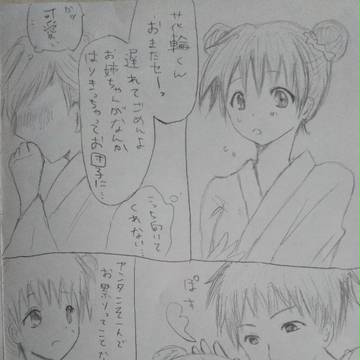 花輪くん
おまたせーっ
遅れてごめんよ
お姉ちゃんがなんか
はりきっちゃってお団子に…
かァッ
可愛…
こっち向いて
くれない…
ぽす
アンタこそそんで
お祭りってことな